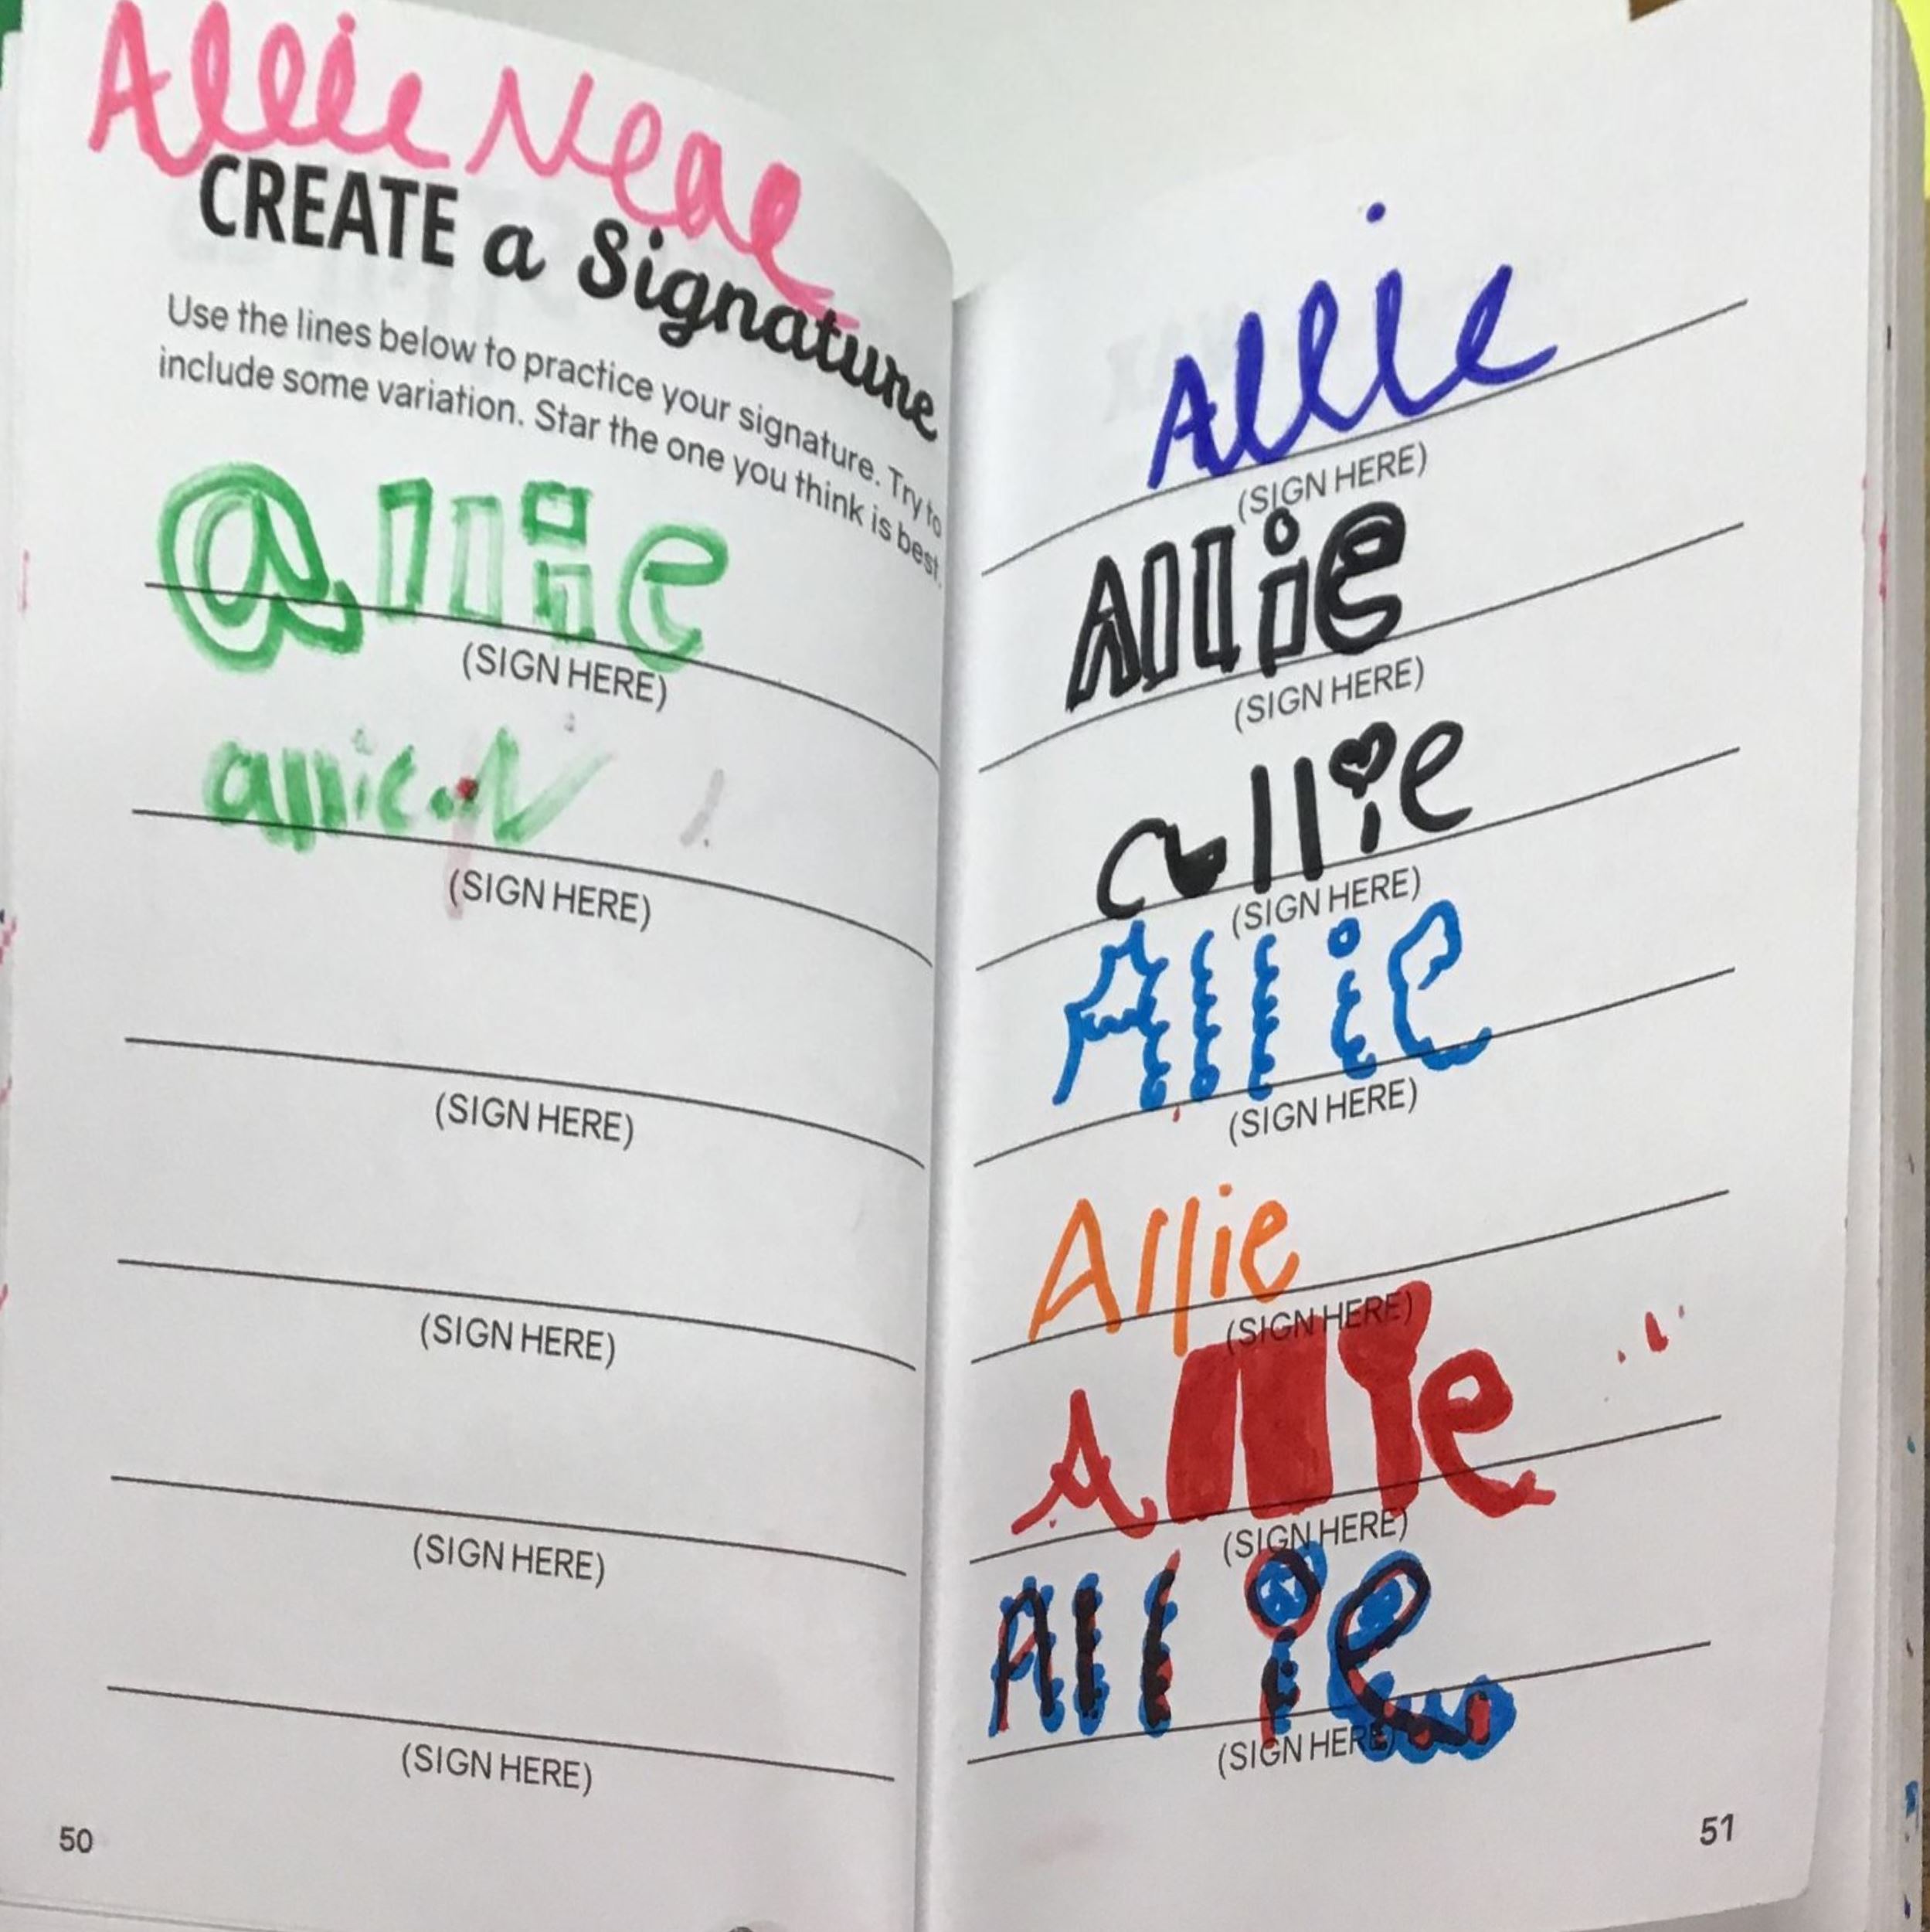 Allie Neal
CREATE a Signature
Use the lines below to practice your signature. Try to
include some variation. Star the one you think is best.
allie
(SIGN HERE)
allie.N
(SIGN HERE)
(SIGN HERE)
(SIGN HERE)
(SIGN HERE)
(SIGN HERE)
50
Allie
(SIGN HERE)
Allie
(SIGN HERE)
allie
(SIGN HERE)
Allie
(SIGN HERE)
Allie
(SIGN HERE)
Allie
(SIGN HERE)
Allie
(SIGN HERE)
51